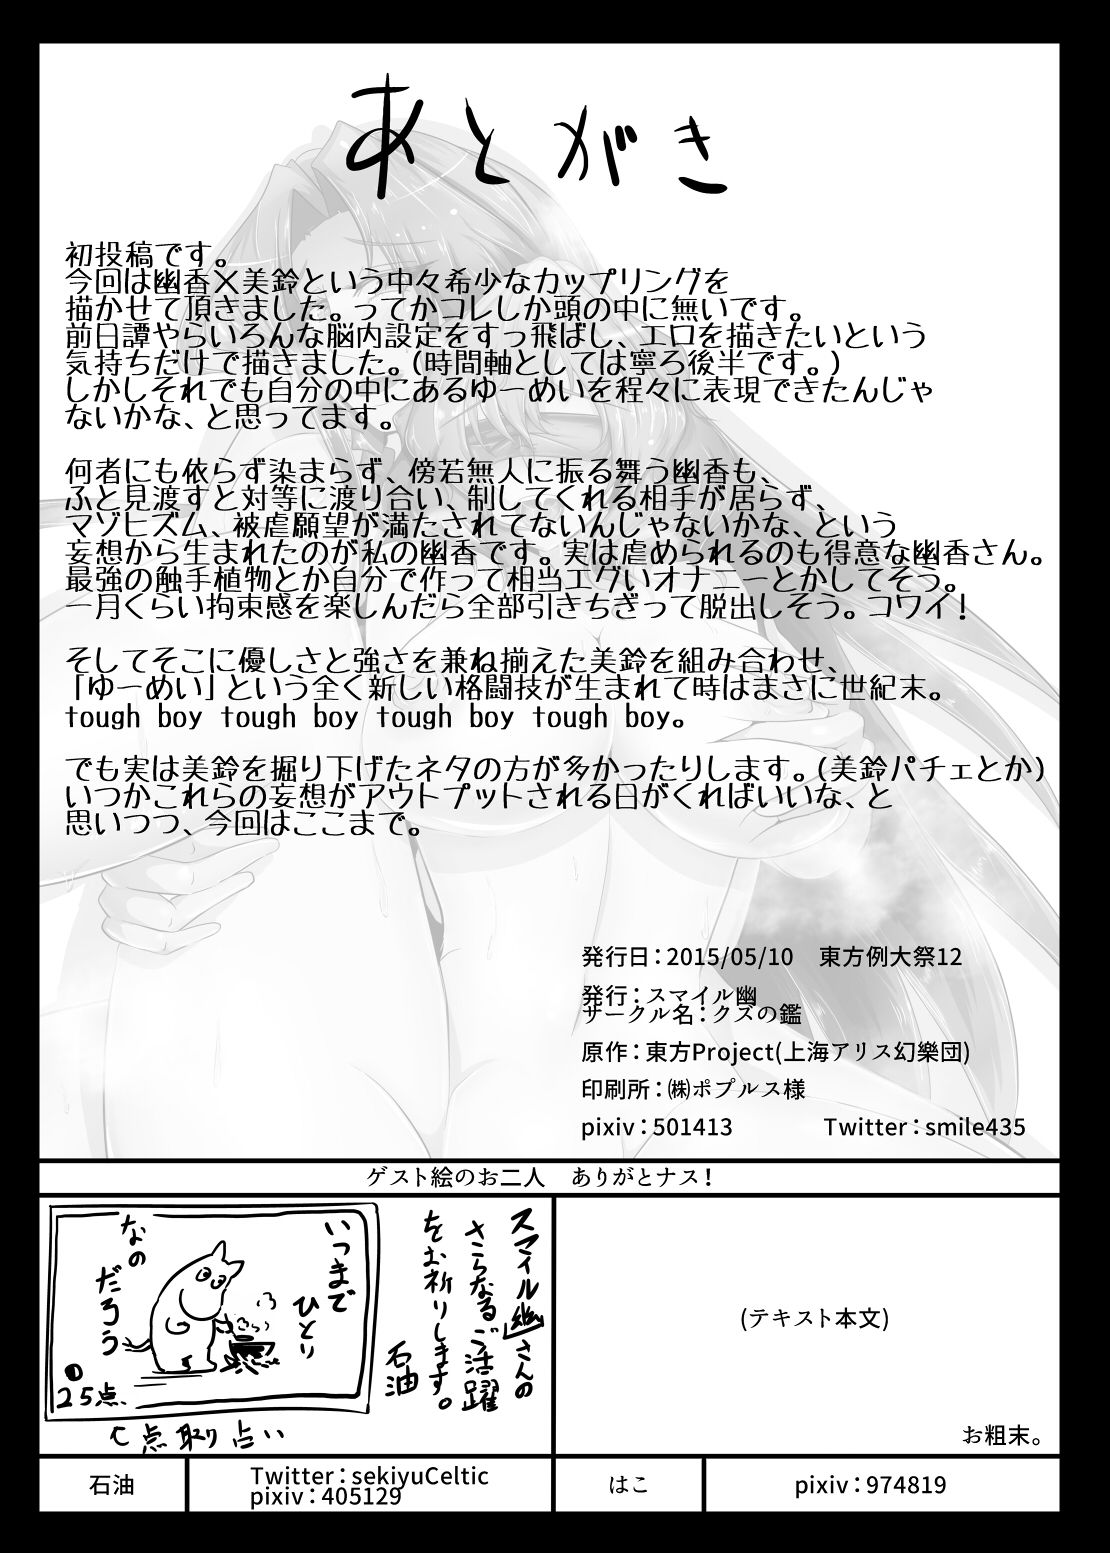 あとがき
初投稿です。
今回は幽香×美鈴という中々希少なカップリングを
描かせて頂きました。ってかコレしか頭の中に無いです。
前日譚やらいろんな脳内設定をすっ飛ばし、エロを描きたいという
気持ちだけで描きました。(時間軸としては寧ろ後半です。)
しかしそれでも自分の中にあるゆーめいを程々に表現できたんじゃ
ないかな、と思ってます。
何者にも依らず染まらず、傍若無人に振る舞う幽香も、
ふと見渡すと対等に渡り合い、制してくれる相手が居らず、
マゾヒズム、被虐願望が満たされてないんじゃないかな、という
妄想から生まれたのが私の幽香です。実は虐められるのも得意な幽香さん。
最強の触手植物とか自分で作って相当エグいオナニーとかしてそう。
一月くらい拘束感を楽しんだら全部引きちぎって脱出しそう。コワイ!
そしてそこに優しさと強さを兼ね揃えた美鈴を組み合わせ、
「ゆーめい」という全く新しい格闘技が生まれて時はまさに世紀末。
tough boy tough boy tough boy tough boy。
でも実は美鈴を掘り下げたネタの方が多かったりします。(美鈴パチェとか)
いつかこれらの妄想がアウトプットされる日がくればいいな、と
思いつつ、今回はここまで。
発行日:2015/05/10 東方例大祭12
発行:スマイル幽
サークル名:クズの鑑
原作:東方Project(上海アリス幻樂団)
印刷所:㈱ポプルス様
pixiv:501413 Twitter:smile435
ゲスト絵のお二人 ありがとナス!
スマイル幽さんの
さらなるご活躍
をお祈りします。
石油
いつまで
ひとり
なの
だろう
❶
25点、
点取り占い
(テキスト本文)
お粗末。
石油
Twitter:sekiyuCeltic
pixiv:405129
はこ
pixiv:974819